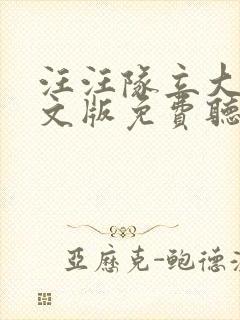 汪汪隊立大
文版免費聽
亞歷克-鮑德溫